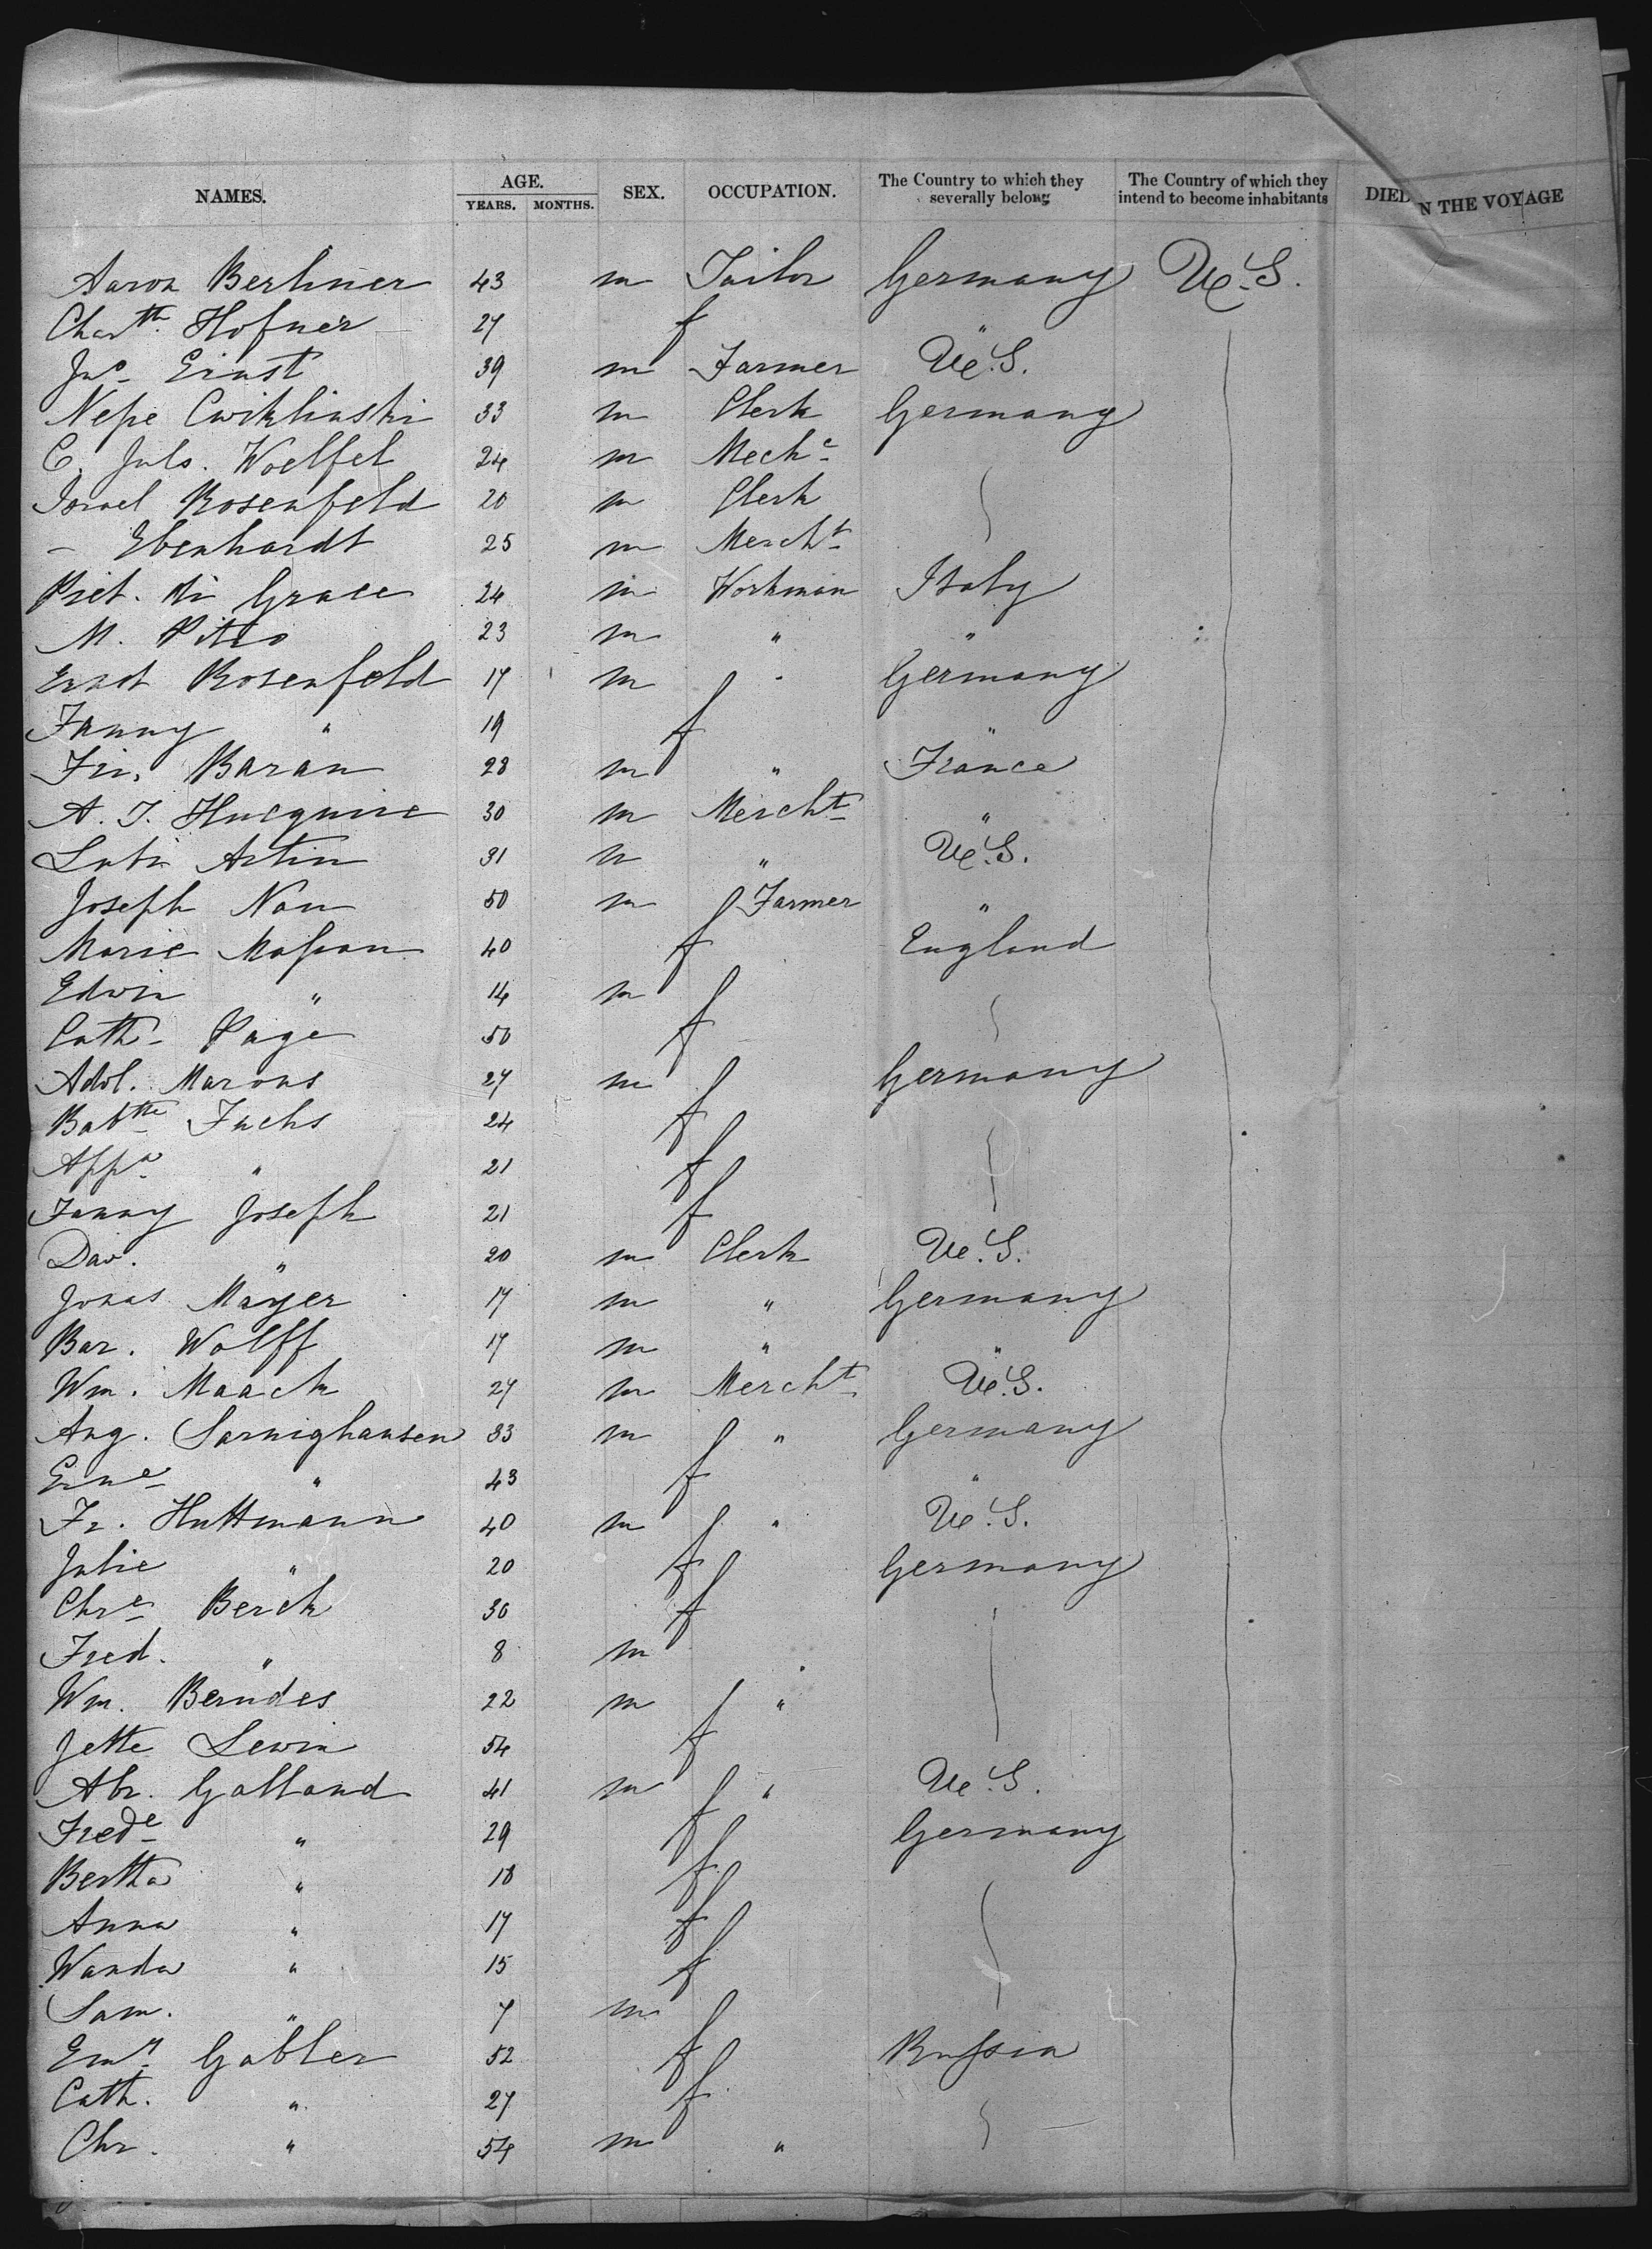 NAMES. AGE. YEARS. MONTHS. SEX. OCCUPATION. The Country to which they severally belong The Country of which they intend to become inhabitants DIED N THE VOYAGE
Aaron Berliner 43 m Tailor Germany U.S.
Chartte Hofner 27 f "
Jno Ernst 39 m Farmer U.S.
Nepe Cwiklinski 33 m Clerk Germany
C. Juls. Woelfel 24 m Mechc
Israel Rosenfeld 20 m Clerk
– Eberhardt 25 m Mercht
Piet. di Grace 24 m Workman Italy
M. Pitro 23 m " "
Ernst Rosenfeld 17 m " Germany
Fanny " 19 f "
Fr. Baran 28 m " France
A. J. Hucquire 30 m Mercht "
Artin 31 m " U.S.
Joseph Nau 50 m Farmer "
Marie Masson 40 f England
Edwin " 14 m
Cath. Page 50 f
Adol. Marous 27 m Germany
Babtte Fuchs 24 f
Appa " 21 f
Fanny Joseph 21 f
Dav. " 20 m Clerk U.S.
Jonas Mayer 17 m " Germany
Bar. Wolff 17 m " "
Wm. Maack 27 m Mercht U.S.
Aug. Sarnighausen 33 m " Germany
Erne " 43 f "
Fr. Huttmann 40 m " U.S.
Julie " 20 f Germany
Chre Berck 30 f
Fred. " 8 m
Wm. Berndes 22 m "
Jette Lewin 54 f
Abr. Galland 41 m " U.S.
Frede " 29 f Germany
Bertha " 18 f
Anna " 17 f
Wanda " 15 f
Sam. " 7 m
Gabler 52 f Russia
Cath. " 27 f
Chr. " 54 m "